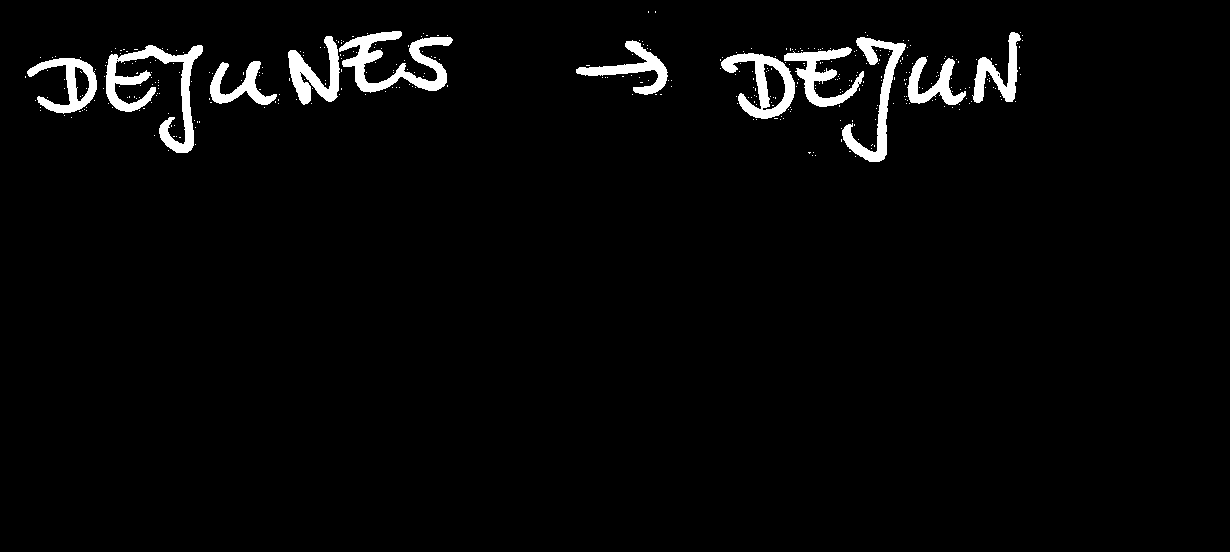 DEJUNES → DEJUN